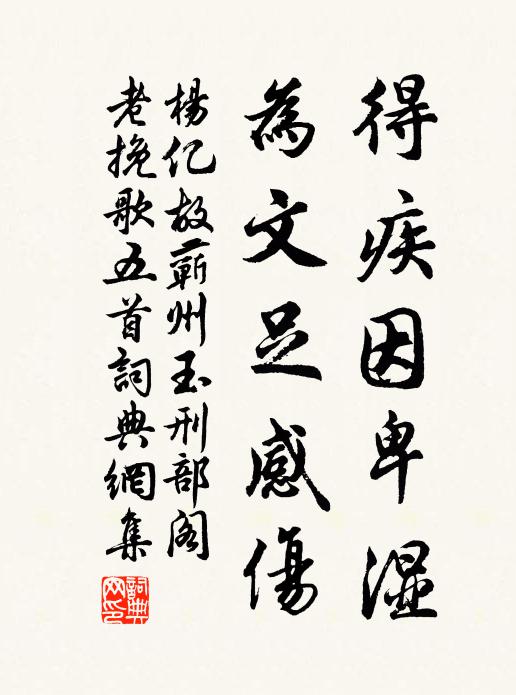 得疾因卑湿
為文足感傷
楊亿故蘄州玉刑部阁
老挽歌五首詞典網集
詞典
网印